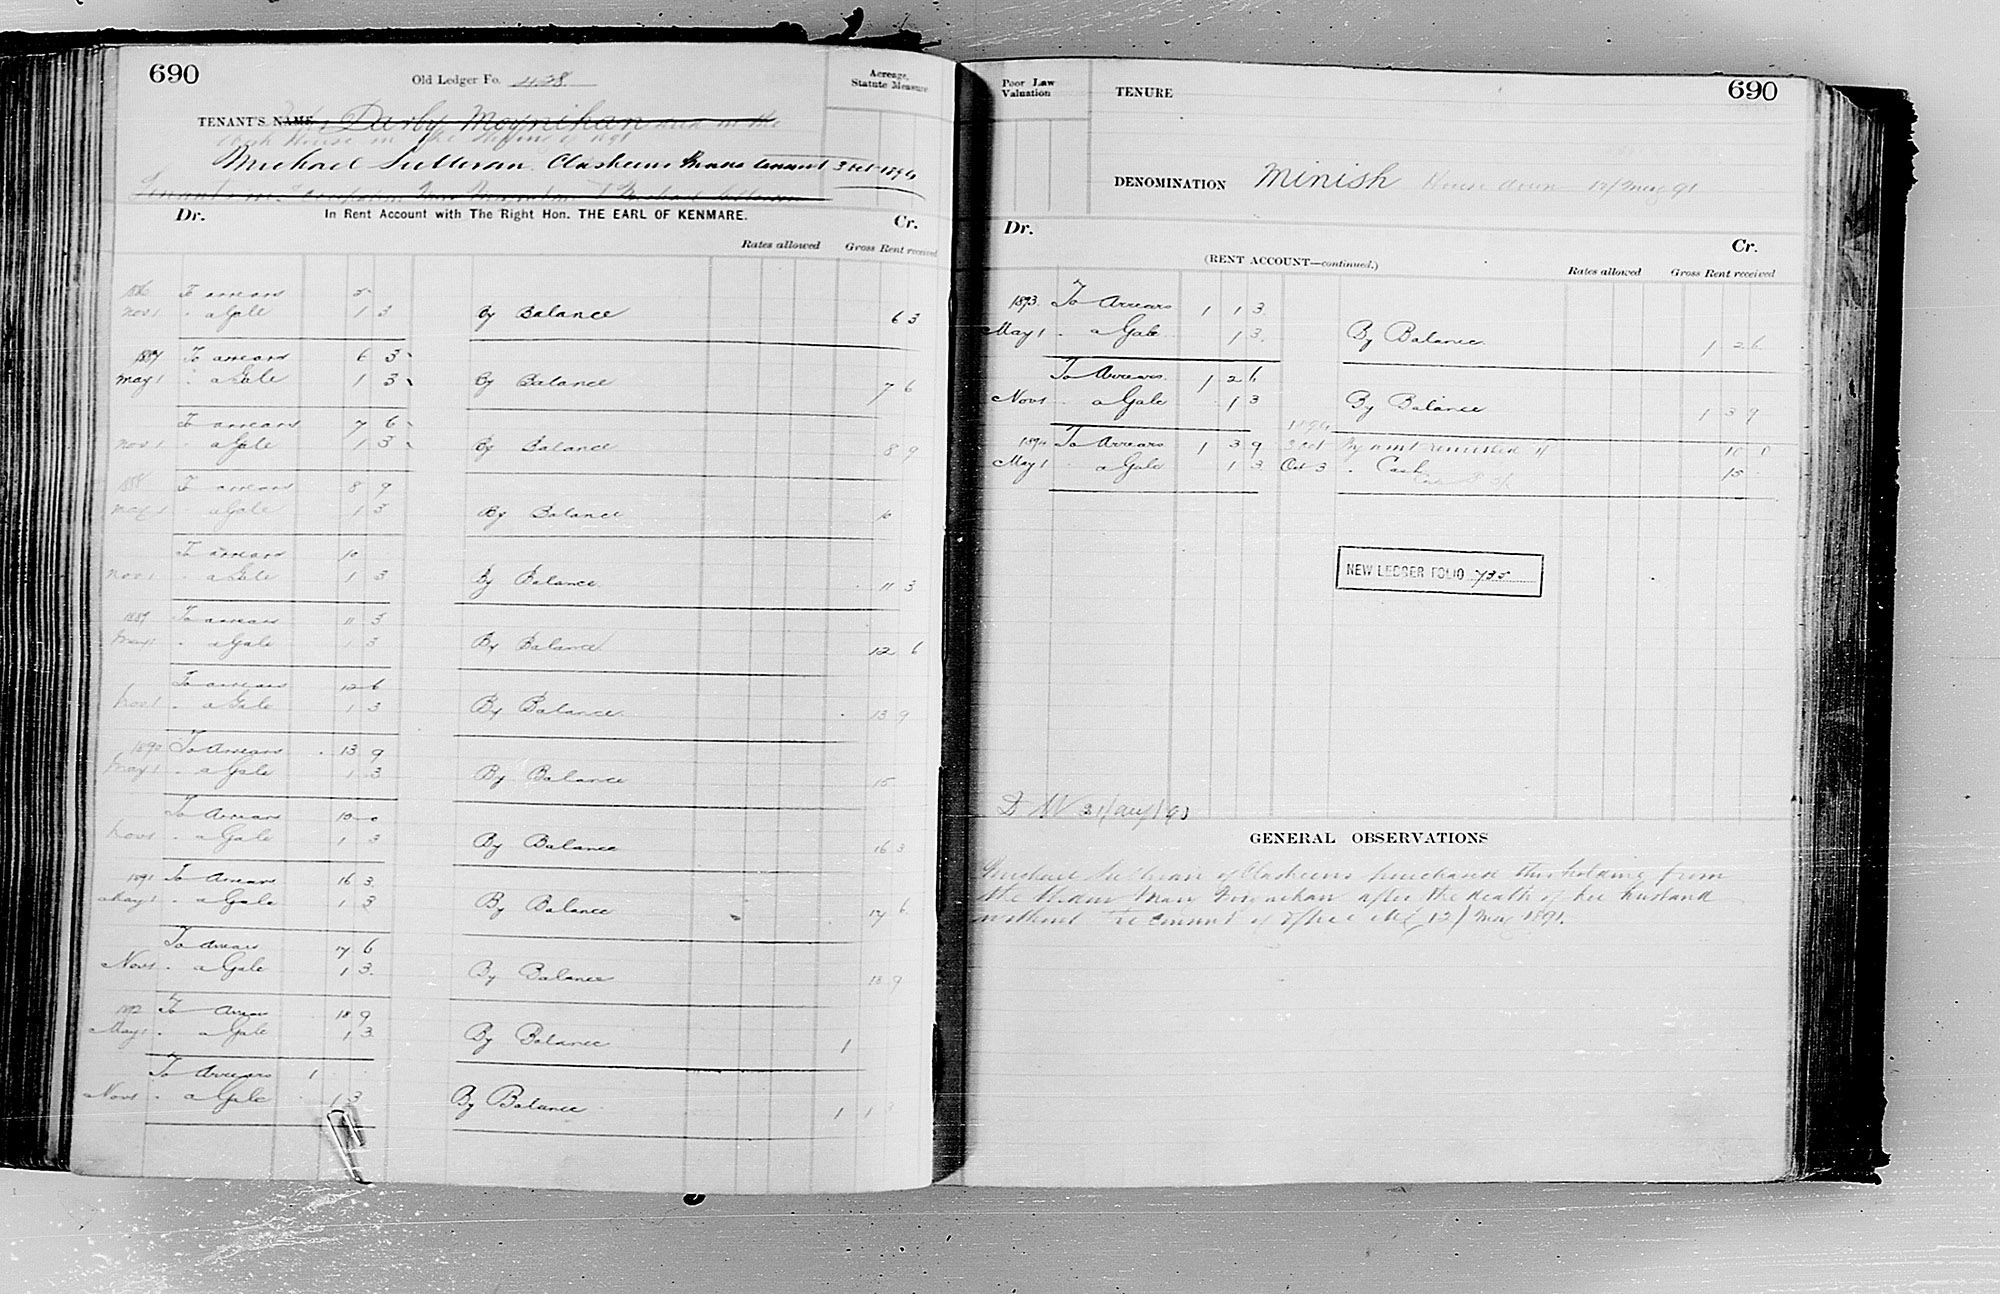 690
Old Ledger Fo. 428
Acreage,
Statute Measure
TENANT'S NAME Darby Moynihan died in the
Work House in the Spring of 1891
Michael Sullivan Clasheens made tenant 3 Oct 1894
Tenant in occupation Michael Sullivan
Dr. In Rent Account with The Right Hon. THE EARL OF KENMARE. Cr.
Rates allowed Gross Rent received
1886 To arrears 5
Nov 1 " a Gale 1 3 By Balance 6 3
1887 To arrears 6 3
May 1 " a Gale 1 3 By Balance 7 6
To arrears 7 6
Nov 1 " a Gale 1 3 By Balance 8 9
1888 To arrears 8 9
May 1 " a Gale 1 3 By Balance 10
To arrears 10
Nov 1 " a Gale 1 3 By Balance 11 3
1889 To arrears 11 3
May 1 " a Gale 1 3 By Balance 12 6
To arrears 12 6
Nov 1 " a Gale 1 3 By Balance 13 9
1890 To Arrears 13 9
May 1 " a Gale 1 3 By Balance 15
To Arrears 15 0
Nov 1 " a Gale 1 3 By Balance 16 3
1891 To Arrears 16 3
May 1 " a Gale 1 3 By Balance 17 6
To Arrears 17 6
Nov 1 " a Gale 1 3 By Balance 18 9
1892 To Arrears 18 9
May 1 " a Gale 1 3 By Balance 1
To Arrears 1
Nov 1 " a Gale 1 3 By Balance 1 1 3
Poor Law
Valuation
TENURE
690
DENOMINATION Minish House down 12/May 91
Dr. Cr.
(RENT ACCOUNT—continued.)
Rates allowed Gross Rent received
1893 To Arrears 1 1 3
May 1 " a Gale 1 3 By Balance 1 2 6
To Arrears 1 2 6
Nov 1 " a Gale 1 3 By Balance 1 3 9
1894
1894 To Arrears 1 3 9 3 Oct By amt remitted 10 0
May 1 " a Gale 1 3 Oct 3 " Cash 15
NEW LEDGER FOLIO 735
GENERAL OBSERVATIONS
Michael Sullivan of Clasheens purchased this holding from
the Widow Mary Moynihan after the death of her husband
without the consent of office 12/May 1891.